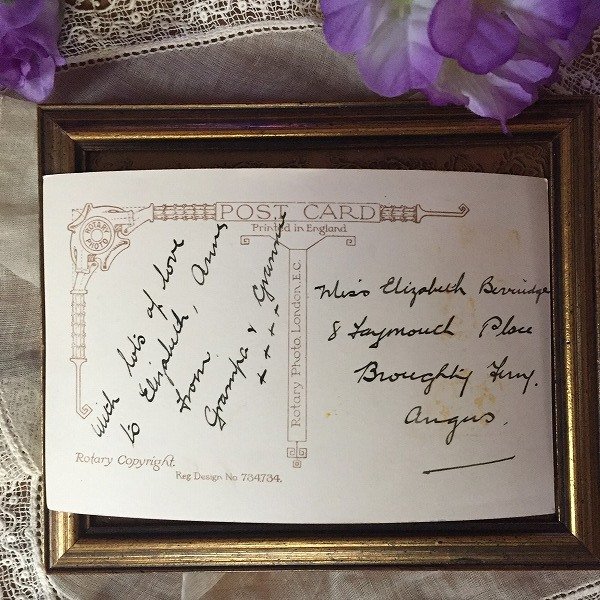 POST CARD
Printed in England
ROTARY PHOTO
With lots of love
to Elizabeth, Anne
from
Grampa & Grannie
++++
Rotary Photo, London, E.C.
Miss Elizabeth Berridge
8 Taymouth Place
Broughty Ferry.
Angus.
Rotary Copyright.
Reg Design No 734734.